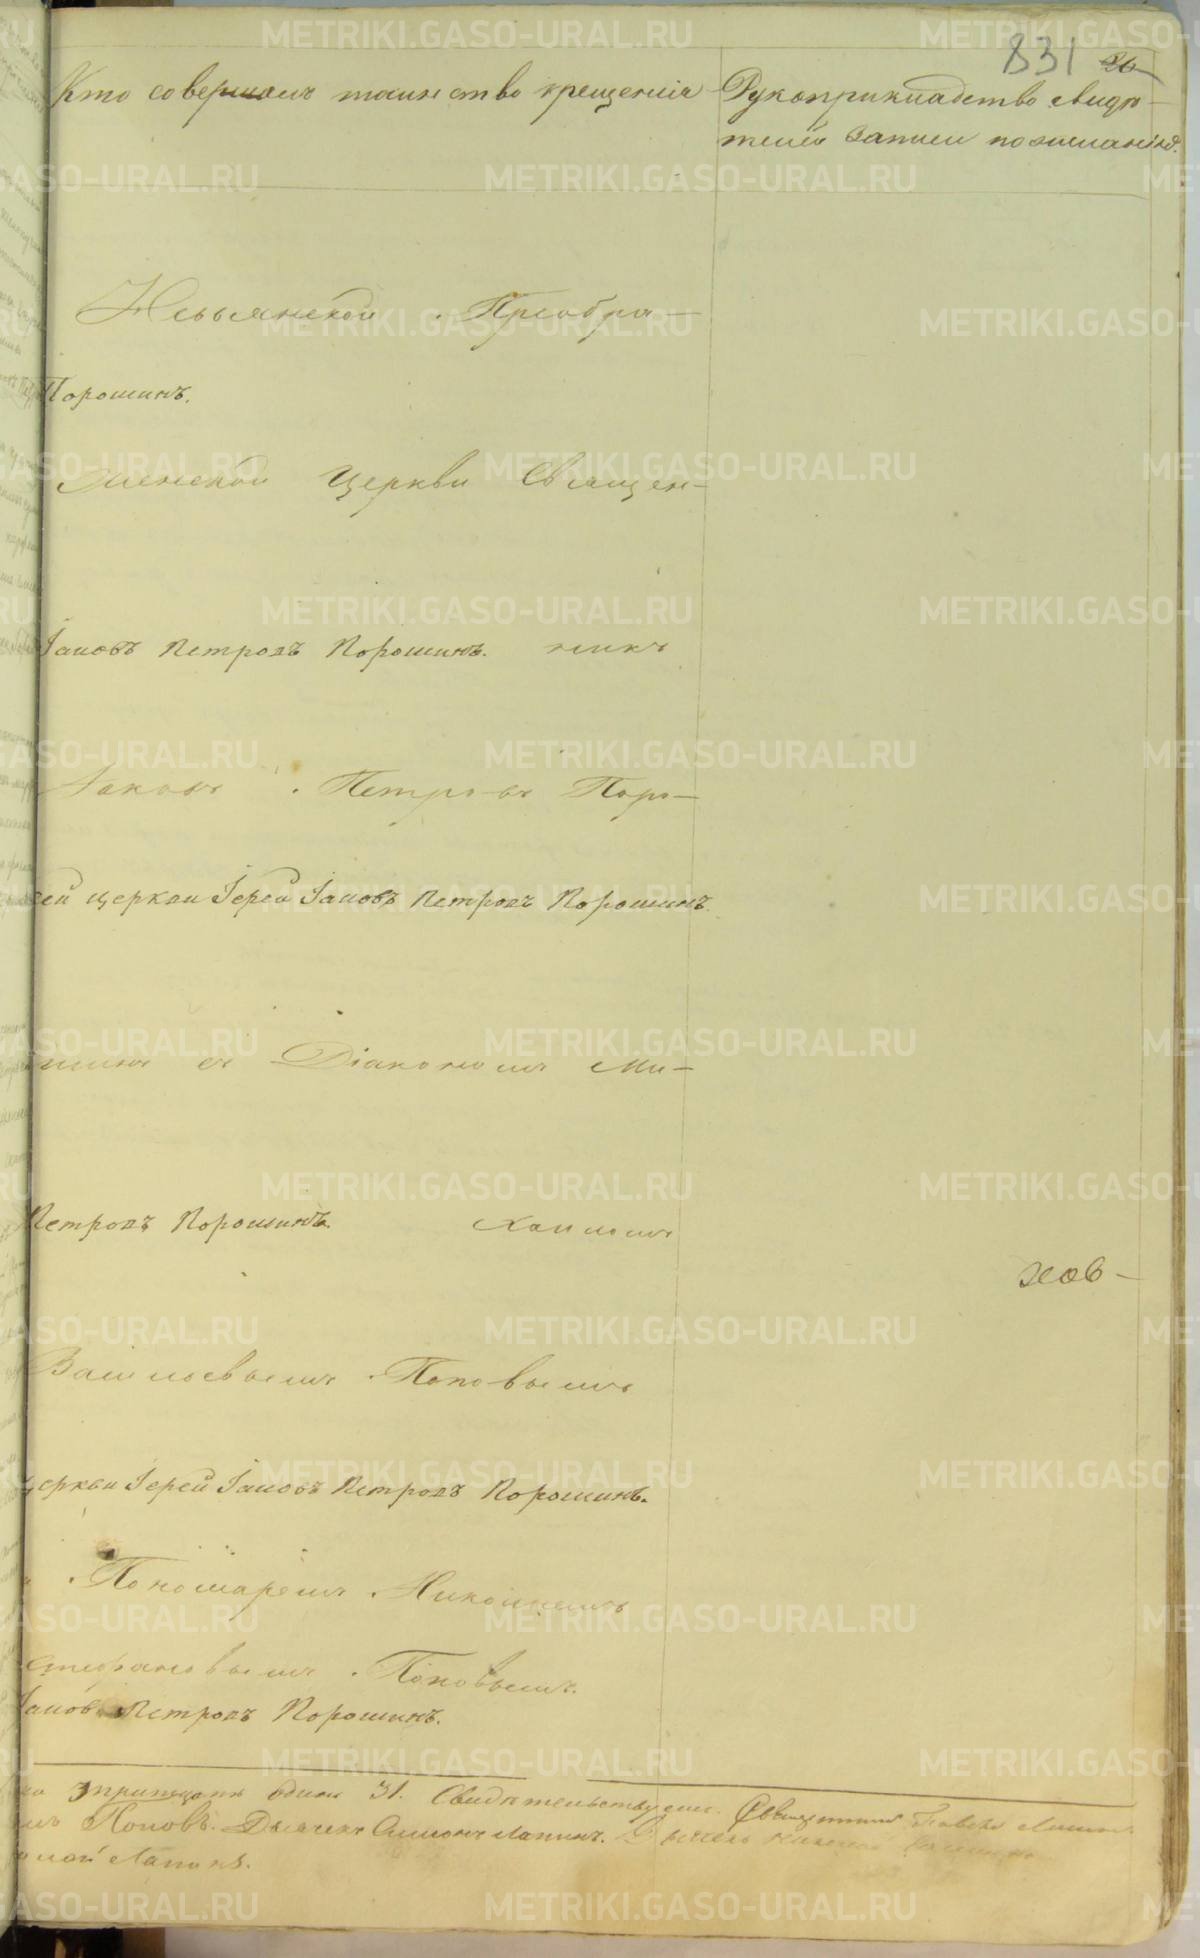 831 26
Кто совершалъ таинство крещенія
Рукоприкладство свидѣ-
телей записи по желанію.
Невьянской Преобра-
Порошинъ.
женской Церкви Священ-
Іаковъ Петровъ Порошинъ. никъ
Іаковъ Петровъ Поро-
сей церкви Іерей Іаковъ Петровъ Порошинъ.
шинъ съ Діакономъ Ми-
Петровъ Порошинъ. хаиломъ
хов-
Васильевымъ Поповымъ
церкви Іерей Іаковъ Петровъ Порошинъ.
Пономаремъ Николаемъ
Стефановымъ Поповымъ.
Іаковъ Петровъ Порошинъ.
тритцать одинъ 31. Свидѣтельствуемъ. Священникъ
Поповъ. Дьячекъ Симонъ Лапинъ.
Лапинъ.